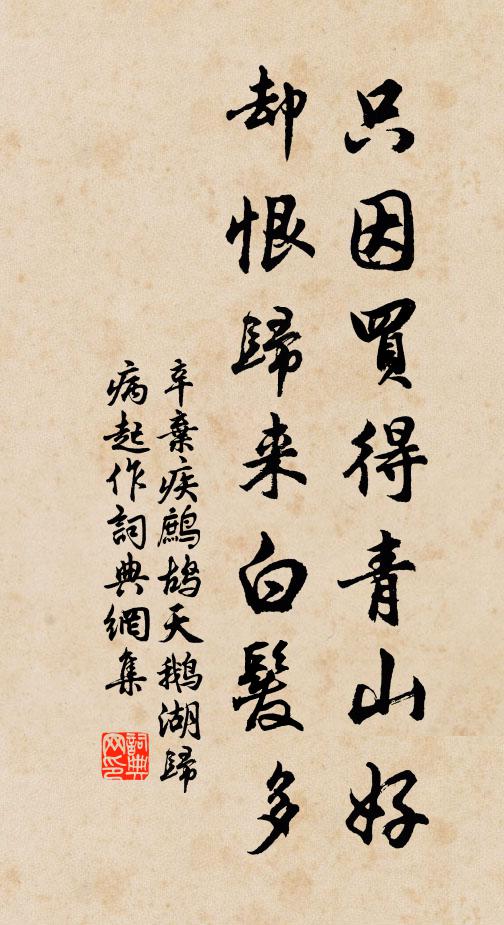 只因買得青山好
却恨歸来白髮多
辛棄疾鷓鴣天鵝湖歸
病起作詞典網集
詞典網印